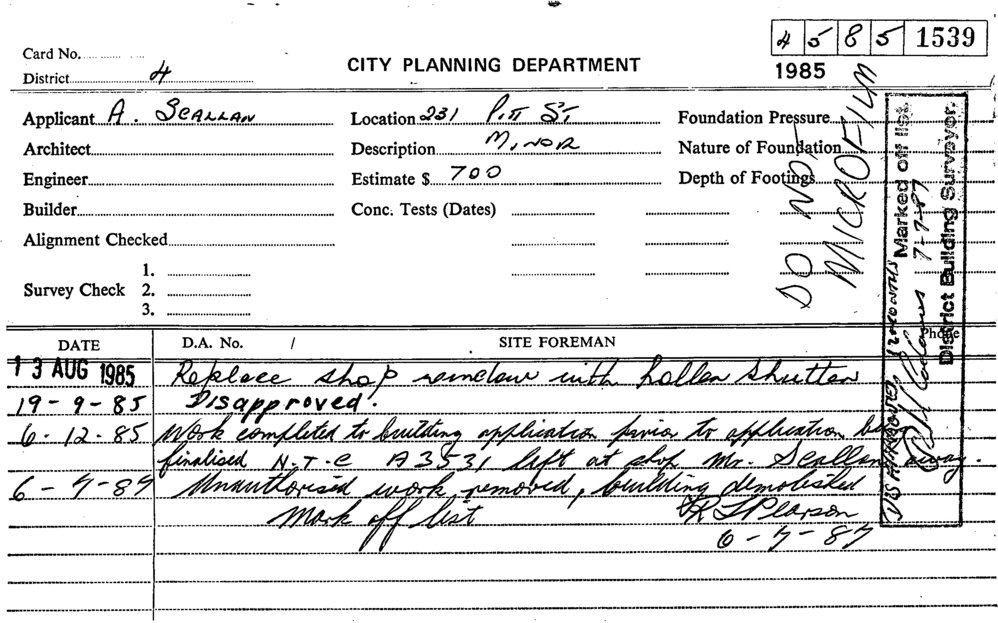 4 5 8 5 1539
Card No.
CITY PLANNING DEPARTMENT
1985
District 4
Applicant A. SCALLAN Location 231 Pitt St, Foundation Pressure
Architect Description MINOR Nature of Foundation
Engineer Estimate $ 700 Depth of Footings
Builder Conc. Tests (Dates)
Alignment Checked
1.
Survey Check 2.
3.
DO NOT MICROFILM
Marked off list.
7-7-87
District Building Surveyor.
DISAPPROVED
Phone
DATE D.A. No. / SITE FOREMAN
13 AUG 1985 Replace shop window with roller shutter
19-9-85 Disapproved.
6.12.85 Work completed to building application prior to application being
finalised N.T.C A3531 left at shop Mr. Scallan away.
6-7-87 Unauthorised work removed, building demolished
Mark off list R L Pearson
6-7-87